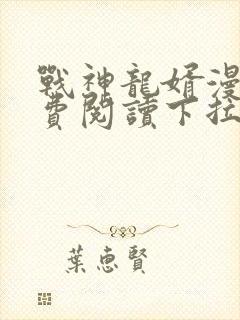 戰神龍婿漫
費閱讀下拉
葉惠賢